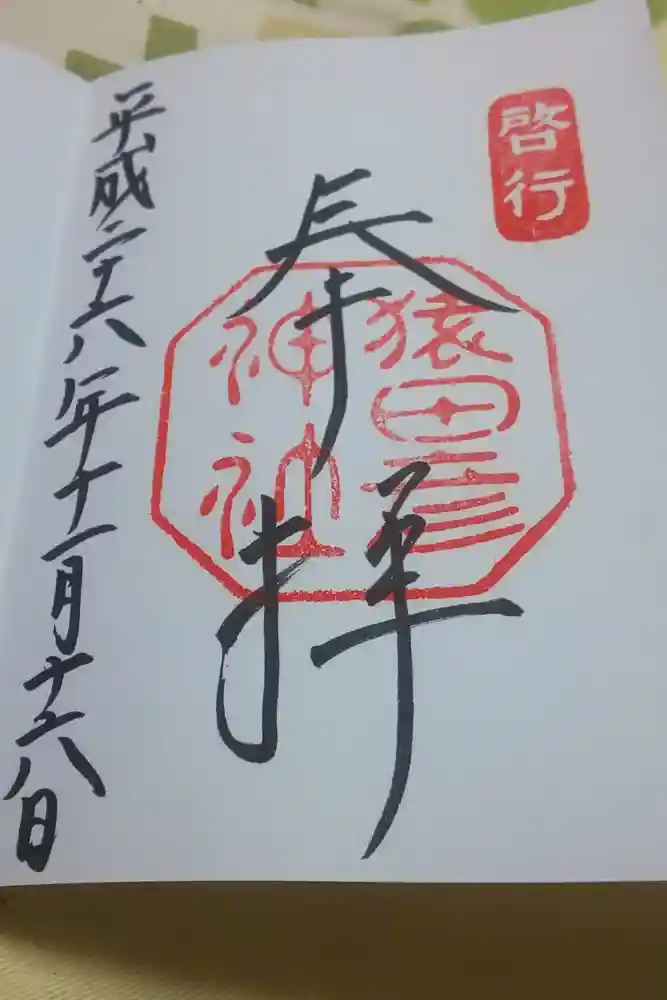 啓行
奉拝
猿田彦
神社
平成二十六年十一月十六日